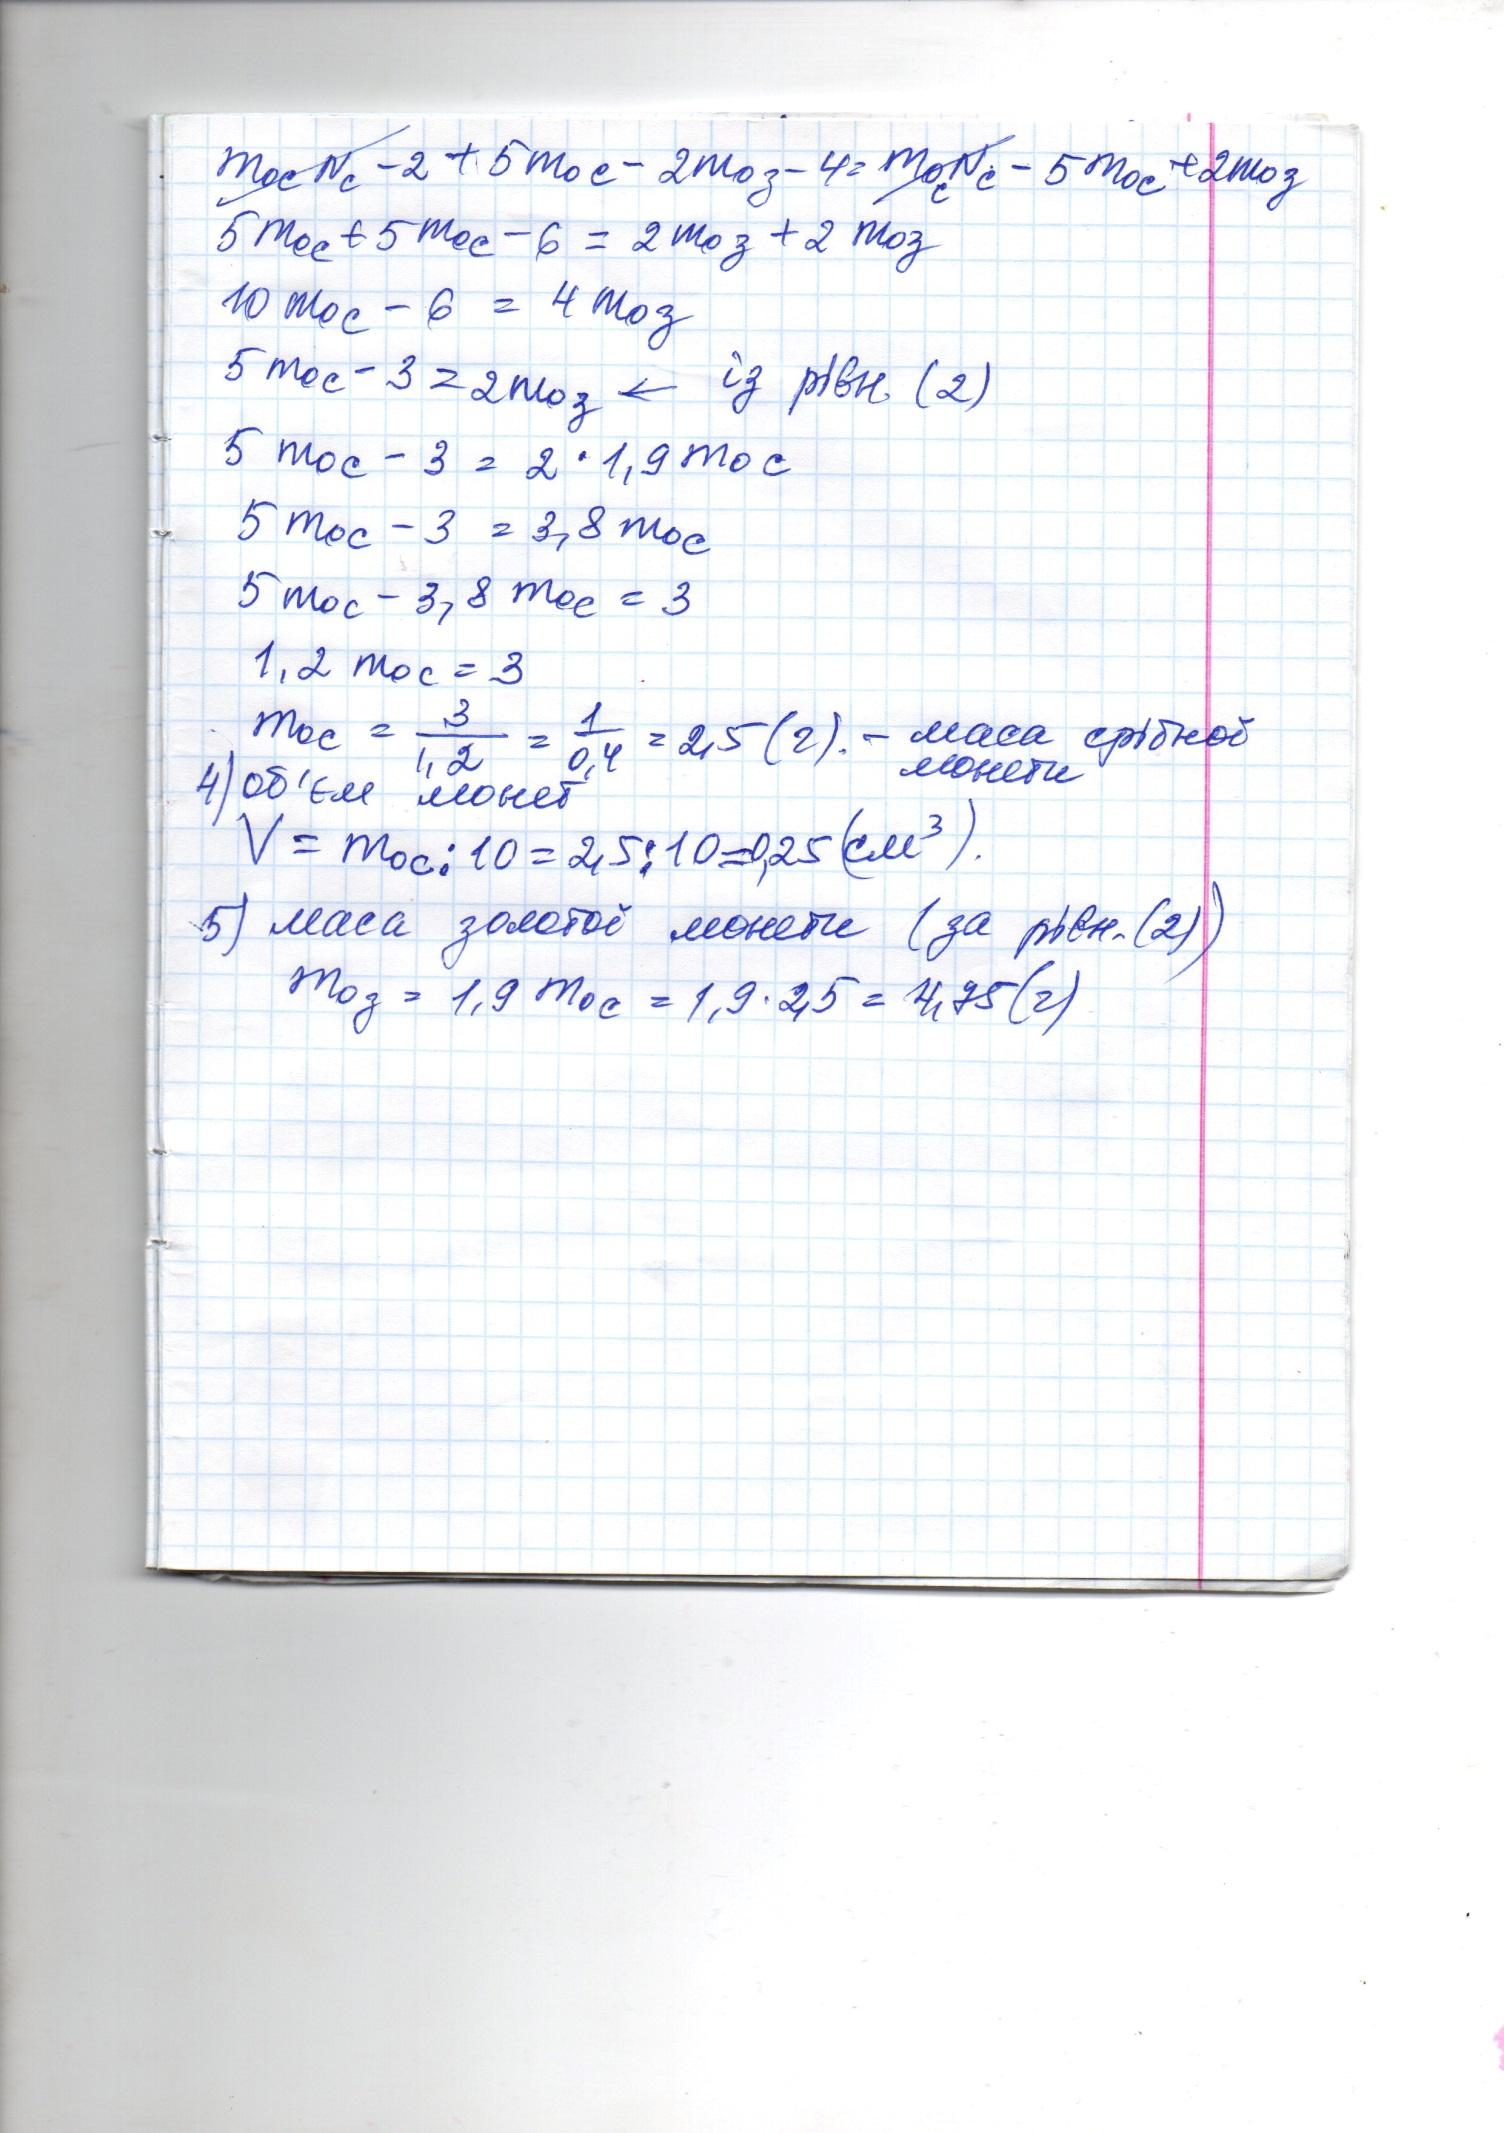 m₀cNc - 2 + 5m₀c - 2m₀з - 4 = m₀cNc - 5m₀c + 2m₀з
5m₀c + 5m₀c - 6 = 2m₀з + 2m₀з
10m₀c - 6 = 4m₀з
5m₀c - 3 = 2m₀з ← із рівн. (2)
5m₀c - 3 = 2 · 1,9m₀c
5m₀c - 3 = 3,8m₀c
5m₀c - 3,8m₀c = 3
1,2m₀c = 3
m₀c = 3/1,2 = 1/0,4 = 2,5 (г). - маса срібної монети
4) об'єм монет
V = m₀c : 10 = 2,5 : 10 = 0,25 (см³).
5) маса золотої монети (за рівн. (2))
m₀з = 1,9m₀c = 1,9 · 2,5 = 4,75 (г)